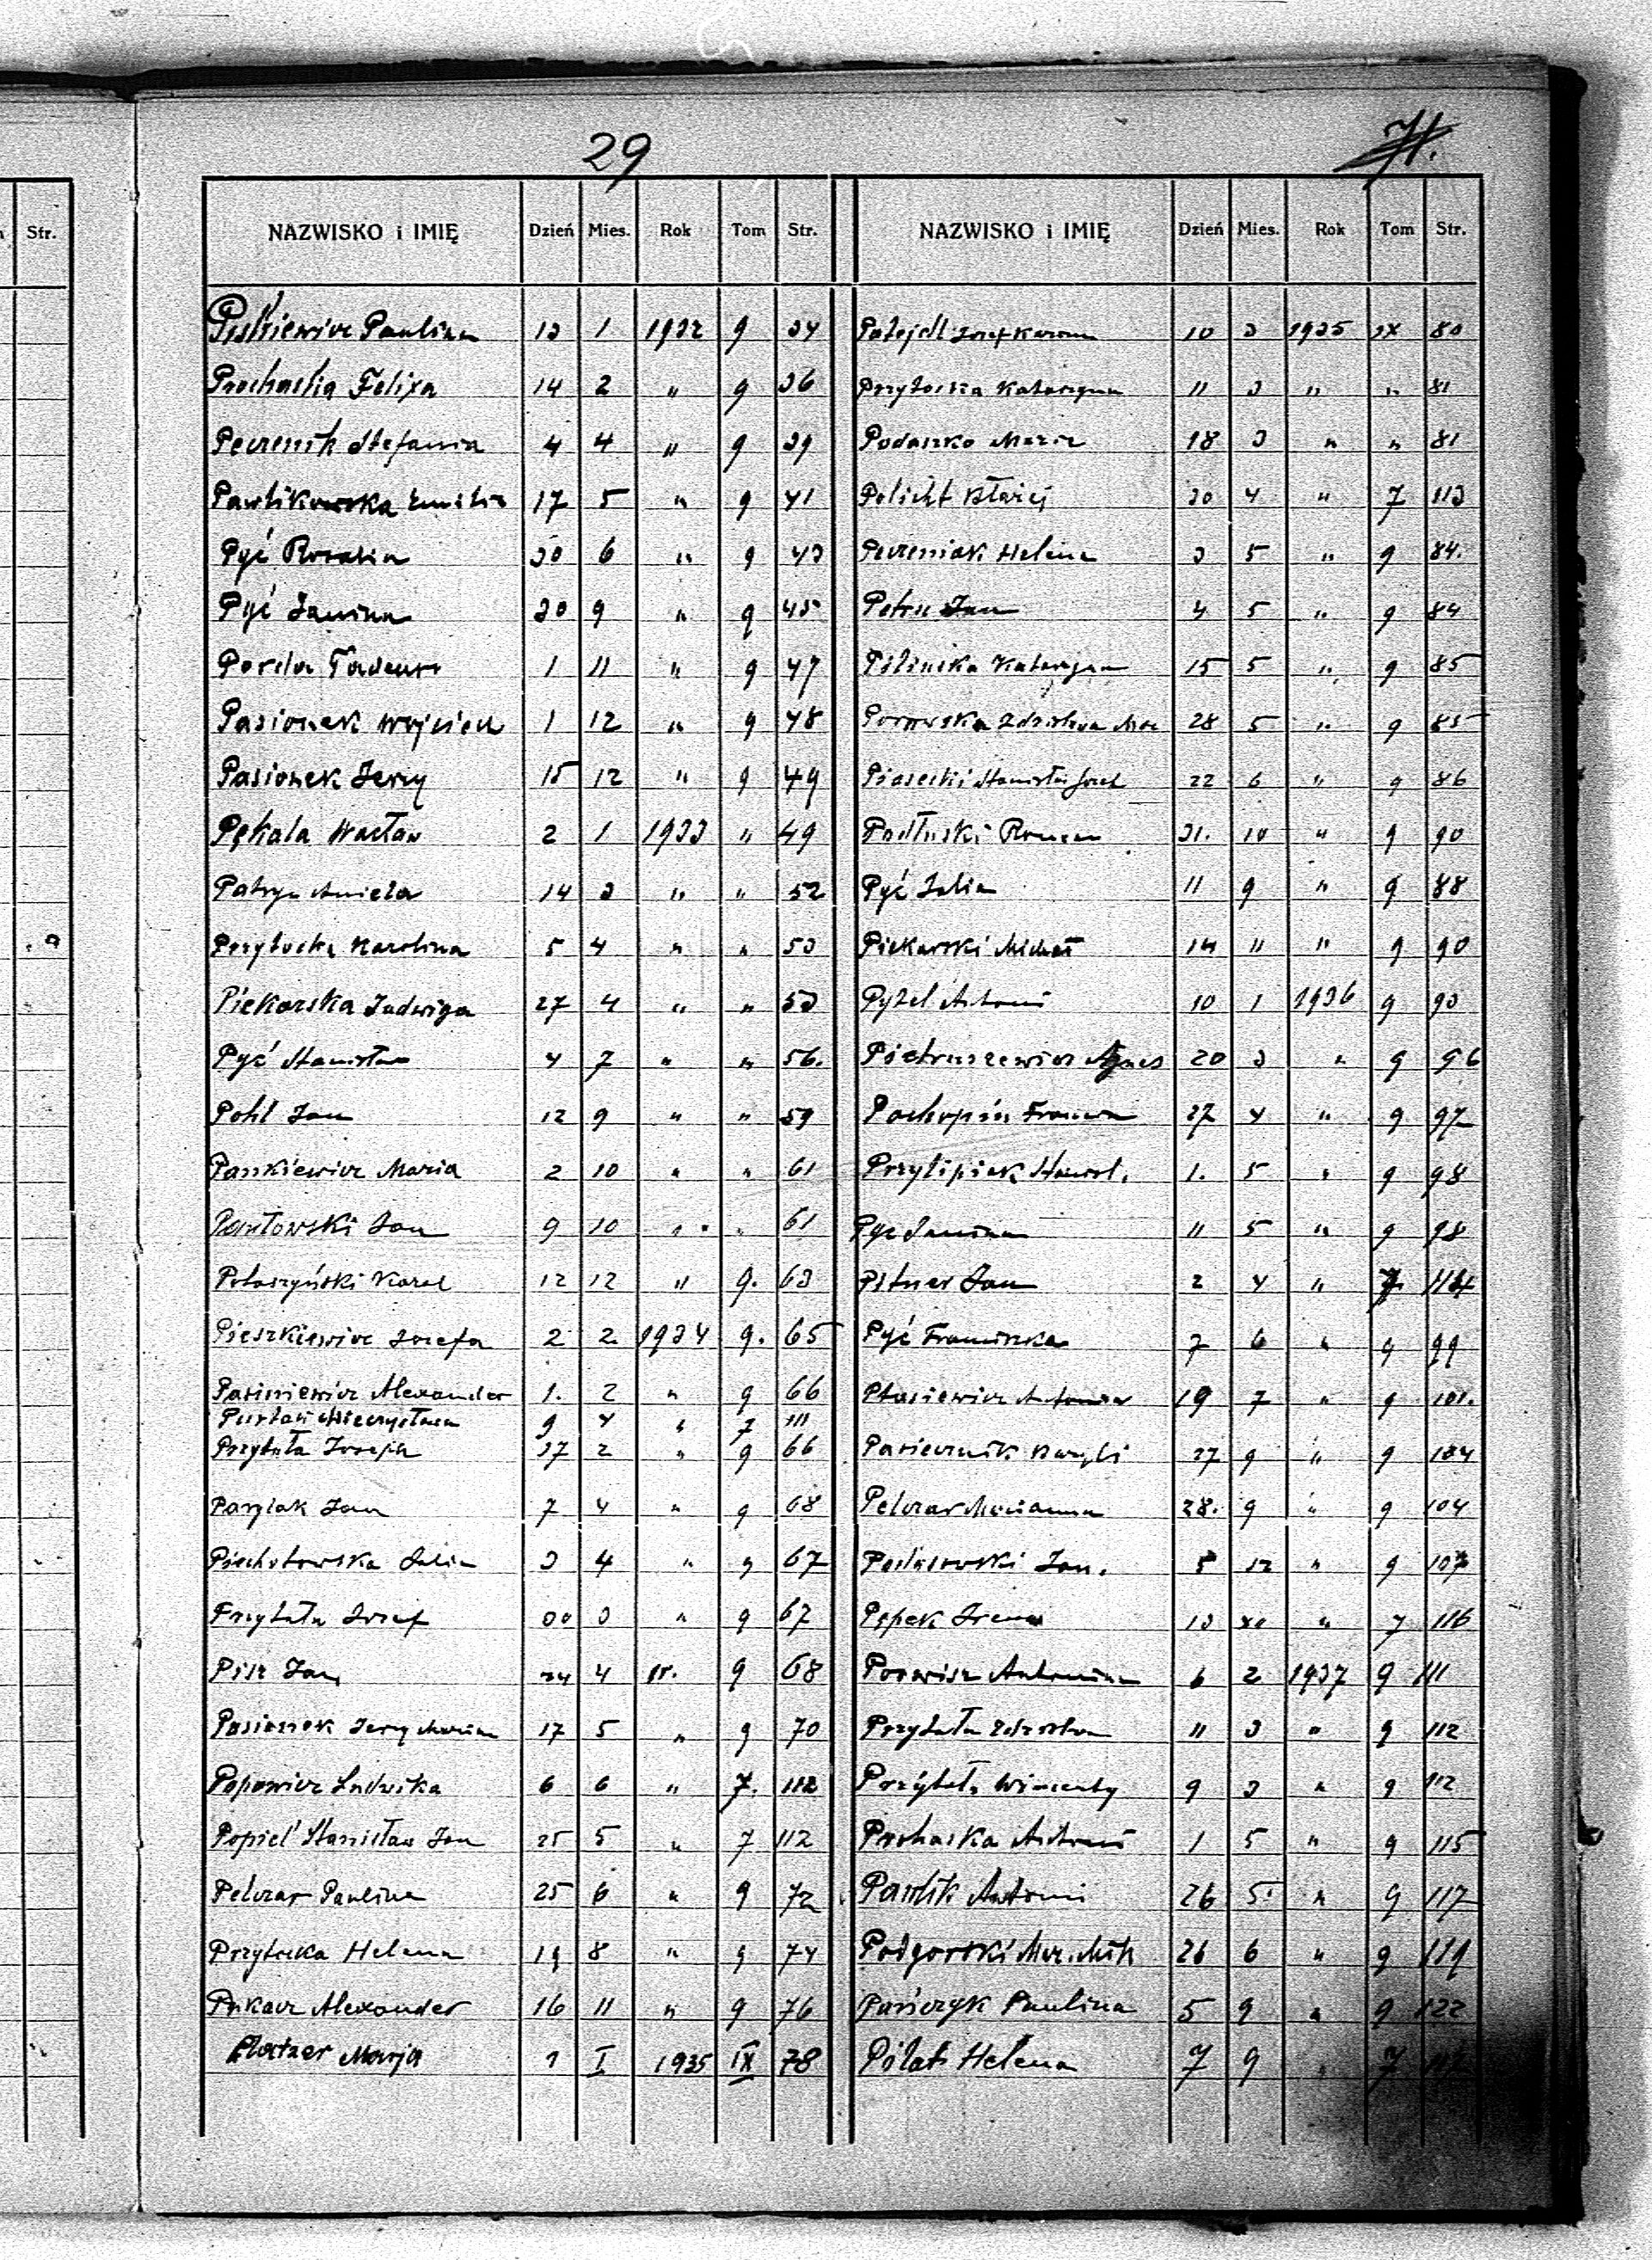 29
71.
Str.
NAZWISKO i IMIĘ Dzień Mies. Rok Tom Str.
Puskiewicz Paulina 13 1 1932 9 34
Prochaska Felixa 14 2 " 9 36
Peczenik Stefania 4 4 " 9 39
Pawlikowska Emilia 17 5 " 9 41
Pyć Rozalia 30 6 " 9 43
Pyć Janina 30 9 " 9 45
Porda Tadeusz 1 11 " 9 47
Pasionek Wojciech 1 12 " 9 48
Pasionek Jerzy 15 12 " 9 49
Pękala Wacław 2 1 1933 " 49
Patryn Aniela 14 3 " " 52
Przytocka Karolina 5 4 " " 53
Piekarska Jadwiga 27 4 " " 53
Pyć Stanisław 4 7 " " 56.
Pohl Jan 12 9 " " 59
Pankiewicz Maria 2 10 " " 61
Pawłowski Jan 9 10 " " 61
Potoczyński Karol 12 12 " 9. 63
Pieszkiewicz Josefa 2 2 1934 9. 65
Pasiniewicz Alexander 1. 2 " 9 66
Mieczysława 9 4 " 7 111
Przytuła Joseph 27 2 " 9 66
Parylak Jan 7 4 " 9 68
Piechotowska Julia 3 4 " " 67
Przytuła Josef 30 3 " 9 67
Pisz Jan 24 4 " 9 68
Pasionek Jerzy Marian 17 5 " 9 70
Popowicz Ludwika 6 6 " 7. 112
Popiel Stanisław Jan 25 5 " 7 112
Pelczar Paulina 25 6 " 9 72
Przytocka Helena 19 8 " 9 74
Pukacz Alexander 16 11 " 9 76
Platzer Marja 1 I 1935 IX 78
NAZWISKO i IMIĘ Dzień Mies. Rok Tom Str.
Patejdl Josef 10 3 1935 IX 80
Przytocka Katarzyna 11 3 " " 81
Podaszko Maria 18 3 " " 81
Policht Błażej 30 4 " 7 113
Peczeniak Helena 3 5 " 9 84.
Petru Jan 4 5 " 9 84
Pilinska Katarzyna 15 5 " 9 85
Porowska Zdzisława Mar 28 5 " 9 85
Piasecki Stanisław Josef 22 6 " 9 86
Podłuski Roman 31. 10 " 9 90
Pyć Julia 11 9 " 9 88
Piekarski Michał 14 11 " 9 90
Pyzel Antoni 10 1 1936 9 93
Pietruszewicz Agnes 20 3 " 9 96
Pochopin Franc 27 4 " 9 97
Przylipiak Stanisł. 1. 5 " 9 98
Pyc Janina 11 5 " 9 98
Pitner Jan 2 4 " 7 114
Pyć Franciszka 7 6 " 9 99
Ptasiewicz Antonina 19 7 " 9 101.
Pasiecznik Bazyli 27 9 " 9 104
Pelczar Marianna 28. 9 " 9 104
Jan. 5 12 " 9 107
Pępek Irena 13 XI " 7 116
Porwisz Antonina 6 2 1937 9 111
Przytuła Zdzisława 11 3 " 9 112
Przytuła Wincenty 9 3 " 9 112
Prohaska Antoni 1 5 " 9 115
Pawlik Antoni 26 5. " 9 117
Podgorski Mar. 26 6 " 9 119
Pańczyk Paulina 5 9 " 9 122
Pilat Helena 7 9 " 7